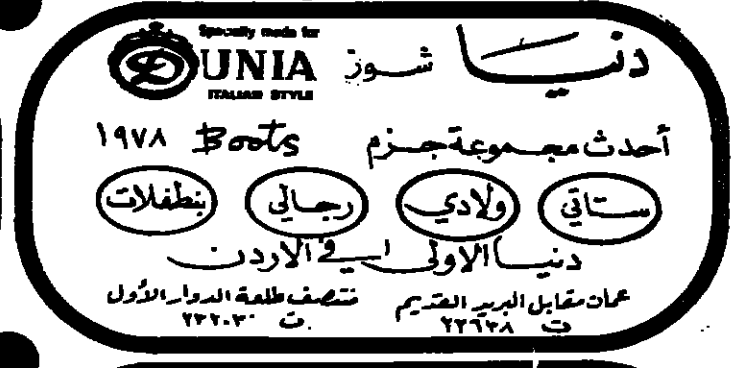 Specially made for
DUNIA
ITALIAN STYLE
دنيا شوز
أحدث مجموعة جزم Boots ١٩٧٨
ستاتي ولادي رجالي بنطفلات
دنيا الاولى في الاردن
عمان مقابل البريد القديم
ت ٢٢٦٣٨
منتصف طلعة الدوار الأول
ت ٢٣٢٠٣٠